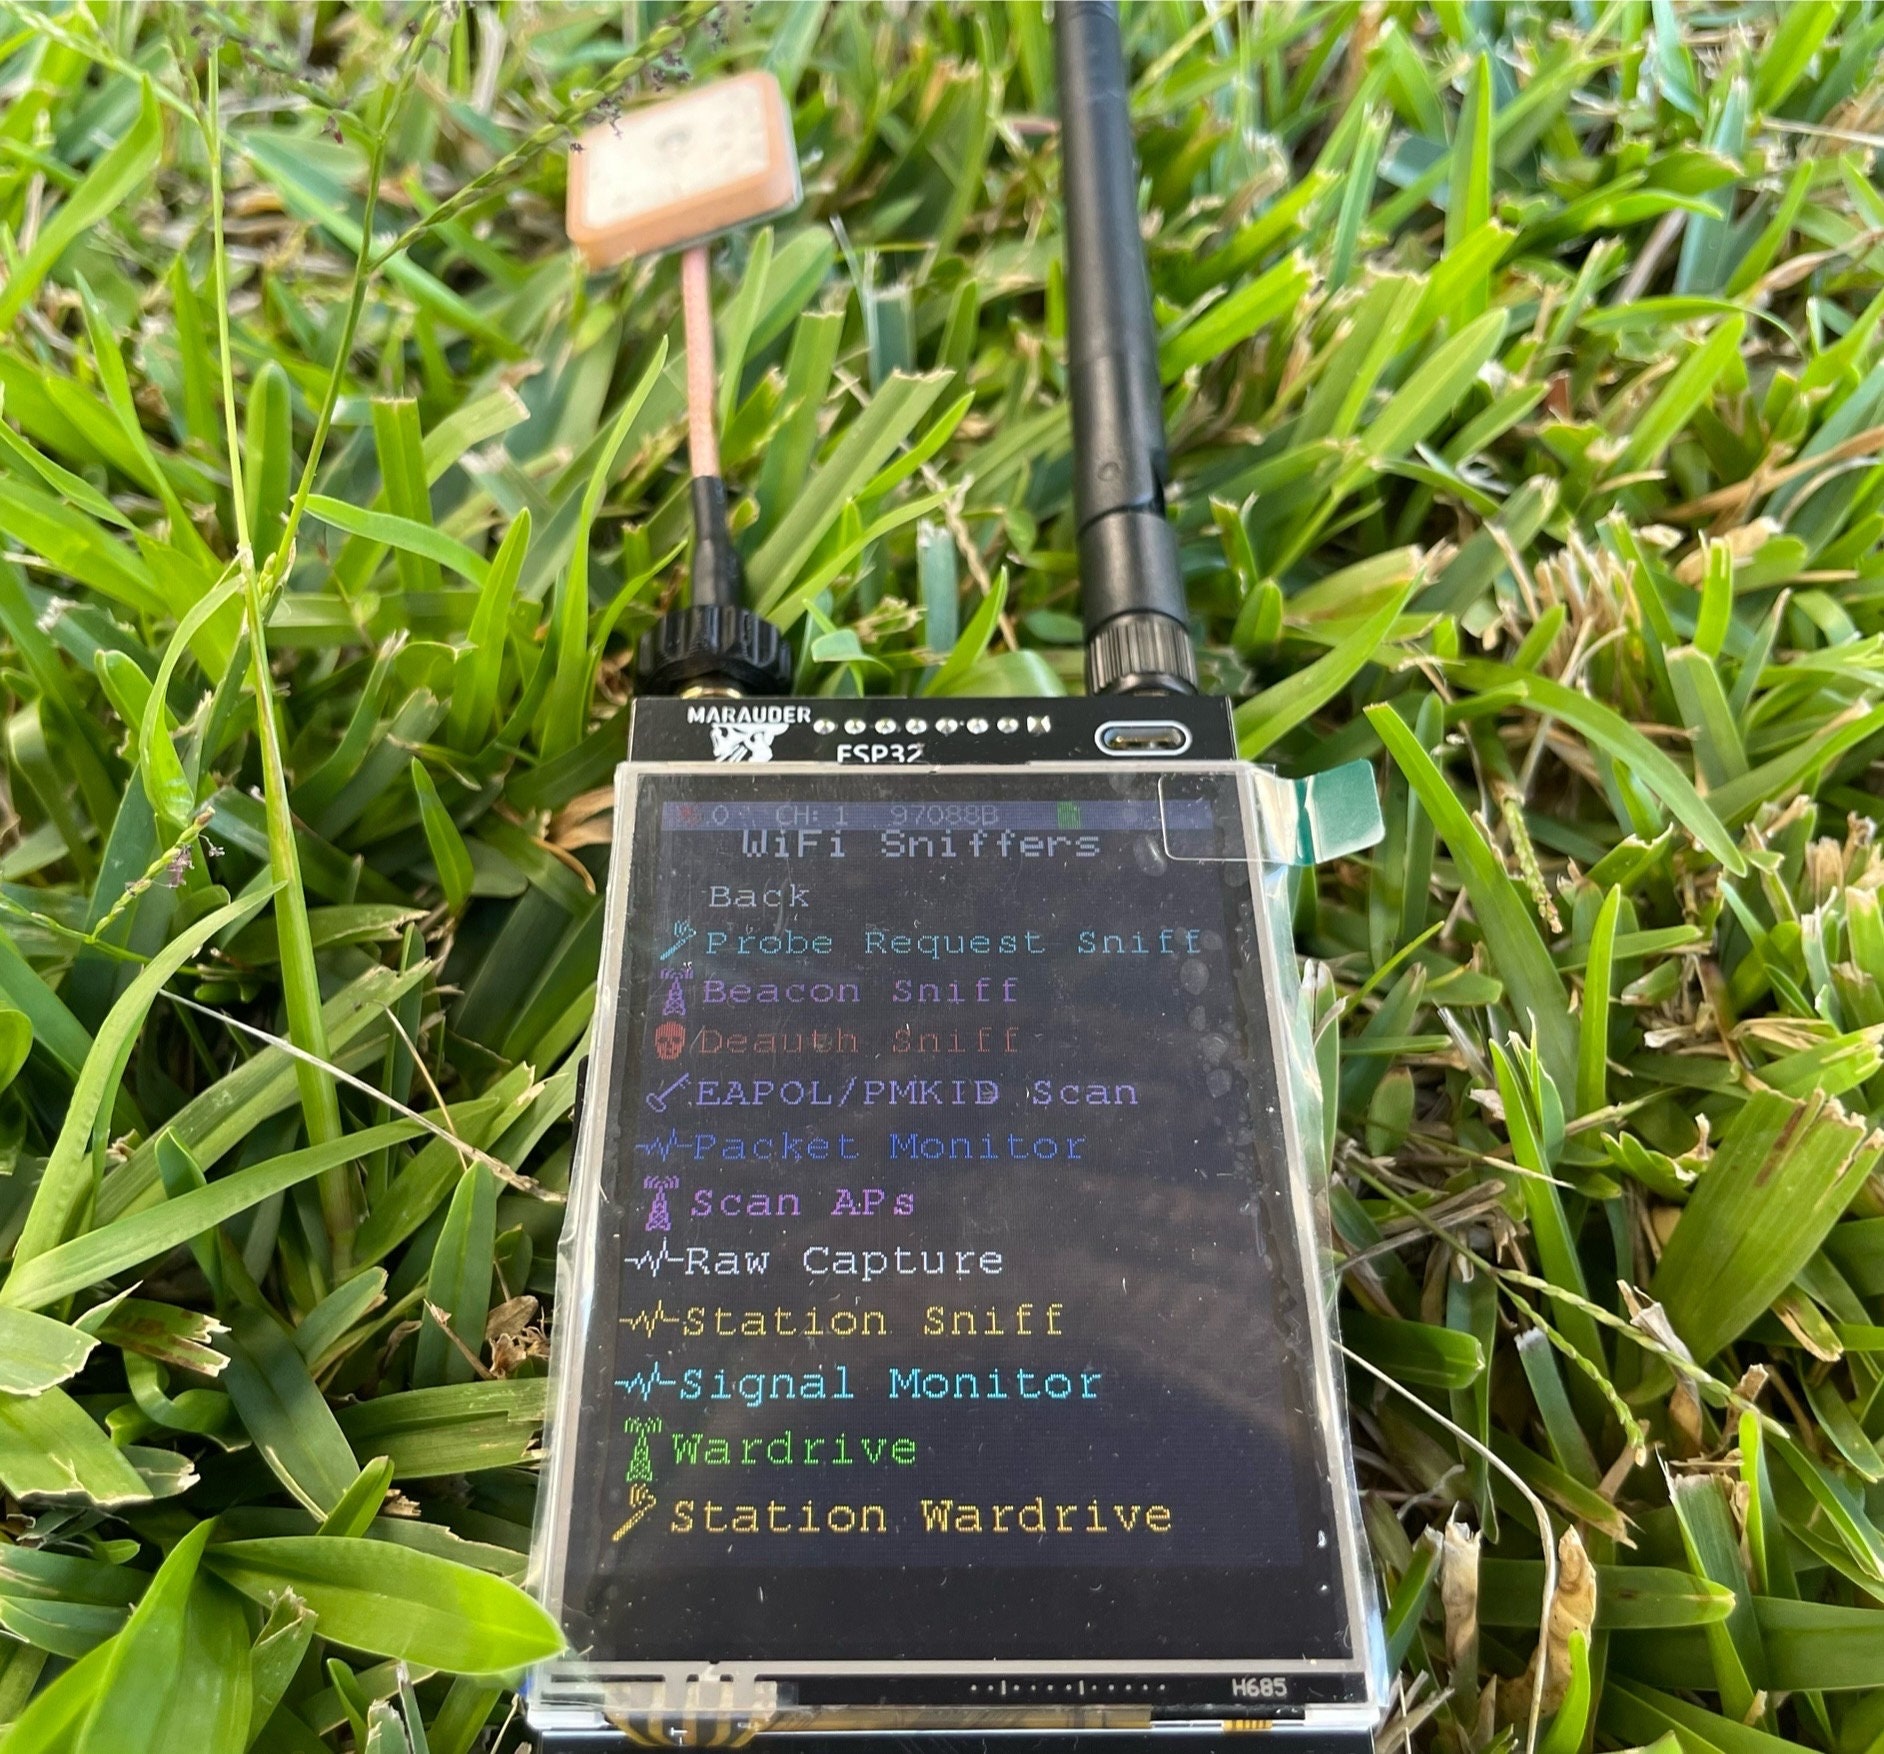 MARAUDER
ESP32
0 CH: 1 97088B
WiFi Sniffers
Back
Probe Request Sniff
Beacon Sniff
Deauth Sniff
EAPOL/PMKID Scan
Packet Monitor
Scan APs
Raw Capture
Station Sniff
Signal Monitor
Wardrive
Station Wardrive
H685